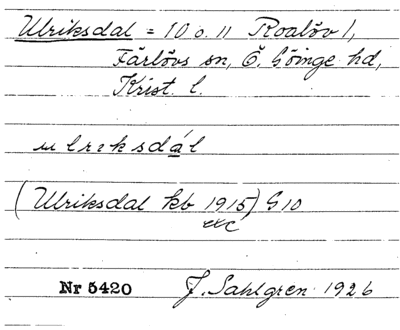 Ulriksdal = 10 o. 11 Roalöv 1,
Färlövs sn, Ö. Göinge hd,
Krist. l.
ulriksdál
(Ulriksdal kb 1915) G 10
etc
Nr 5420 J. Sahlgren 1926